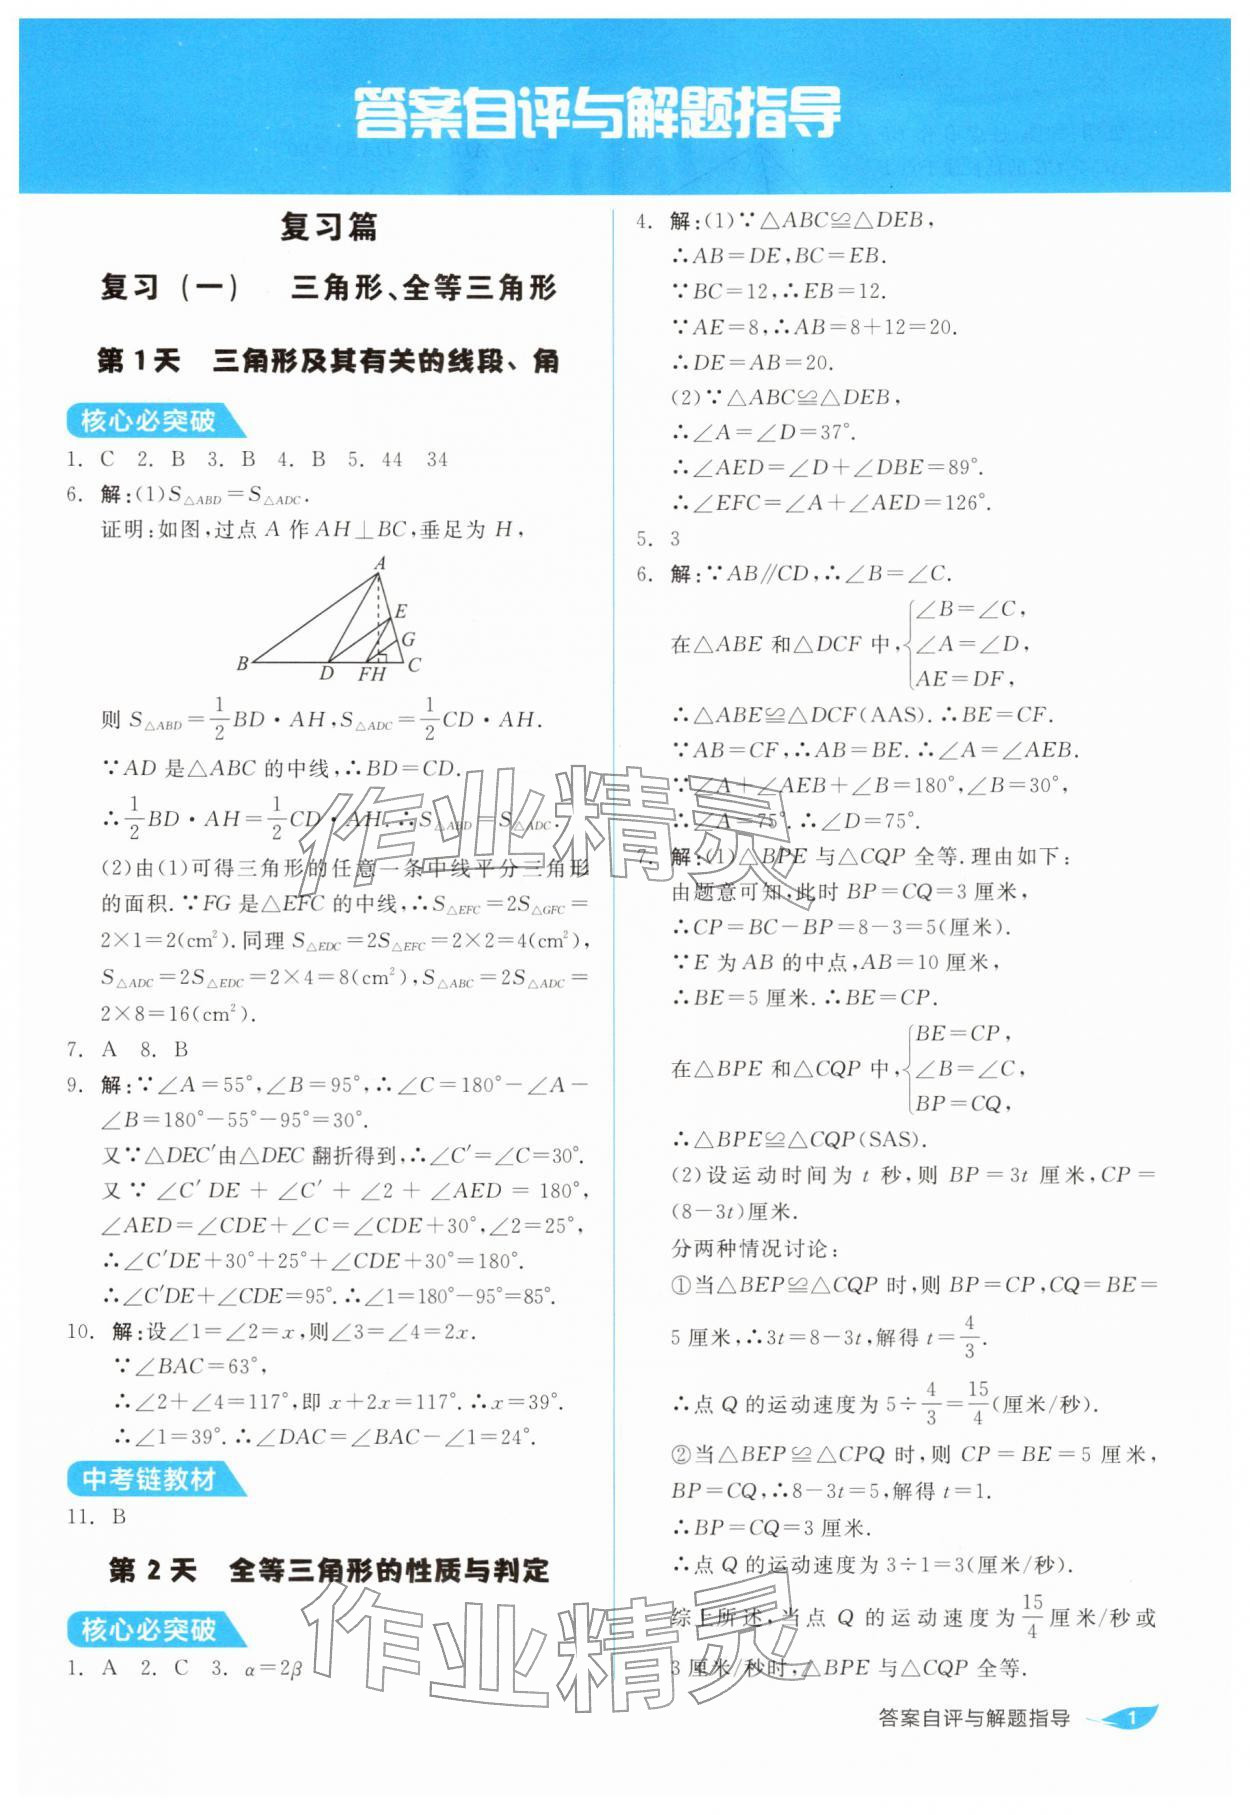 答案自评与解题指导
复习篇
复习(一) 三角形、全等三角形
第1天 三角形及其有关的线段、角
核心必突破
1. C 2. B 3. B 4. B 5. 44 34
6. 解:(1)S△ABD=S△ADC.
证明:如图,过点 A 作 AH⊥BC,垂足为 H,
A
E
G
B D FH C
则 S△ABD=1/2BD·AH,S△ADC=1/2CD·AH.
∵AD 是△ABC 的中线,∴BD=CD.
∴1/2BD·AH=1/2CD·AH.∴S△ABD=S△ADC.
(2)由(1)可得三角形的任意一条中线平分三角形
的面积.∵FG 是△EFC 的中线,∴S△EFC=2S△GFC=
2×1=2(cm²).同理 S△EDC=2S△EFC=2×2=4(cm²),
S△ADC=2S△EDC=2×4=8(cm²),S△ABC=2S△ADC=
2×8=16(cm²).
7. A 8. B
9. 解:∵∠A=55°,∠B=95°,∴∠C=180°-∠A-
∠B=180°-55°-95°=30°.
又∵△DEC′由△DEC 翻折得到,∴∠C′=∠C=30°.
又∵∠C′DE+∠C′+∠2+∠AED=180°,
∠AED=∠CDE+∠C=∠CDE+30°,∠2=25°,
∴∠C′DE+30°+25°+∠CDE+30°=180°.
∴∠C′DE+∠CDE=95°.∴∠1=180°-95°=85°.
10. 解:设∠1=∠2=x,则∠3=∠4=2x.
∵∠BAC=63°,
∴∠2+∠4=117°,即 x+2x=117°.∴x=39°.
∴∠1=39°.∴∠DAC=∠BAC-∠1=24°.
中考链教材
11. B
第2天 全等三角形的性质与判定
核心必突破
1. A 2. C 3. α=2β
4. 解:(1)∵△ABC≌△DEB,
∴AB=DE,BC=EB.
∵BC=12,∴EB=12.
∵AE=8,∴AB=8+12=20.
∴DE=AB=20.
(2)∵△ABC≌△DEB,
∴∠A=∠D=37°.
∴∠AED=∠D+∠DBE=89°.
∴∠EFC=∠A+∠AED=126°.
5. 3
6. 解:∵AB∥CD,∴∠B=∠C.
在△ABE 和△DCF 中,{∠B=∠C,
∠A=∠D,
AE=DF,
∴△ABE≌△DCF(AAS).∴BE=CF.
∵AB=CF,∴AB=BE.∴∠A=∠AEB.
∵∠A+∠AEB+∠B=180°,∠B=30°,
∴∠A=75°.∴∠D=75°.
7. 解:(1)△BPE 与△CQP 全等.理由如下:
由题意可知,此时 BP=CQ=3 厘米,
∴CP=BC-BP=8-3=5(厘米).
∵E 为 AB 的中点,AB=10 厘米,
∴BE=5 厘米.∴BE=CP.
在△BPE 和△CQP 中,{BE=CP,
∠B=∠C,
BP=CQ,
∴△BPE≌△CQP(SAS).
(2)设运动时间为 t 秒,则 BP=3t 厘米,CP=
(8-3t)厘米.
分两种情况讨论:
①当△BEP≌△CQP 时,则 BP=CP,CQ=BE=
5 厘米,∴3t=8-3t,解得 t=4/3.
∴点 Q 的运动速度为 5÷4/3=15/4(厘米/秒).
②当△BEP≌△CPQ 时,则 CP=BE=5 厘米,
BP=CQ,∴8-3t=5,解得 t=1.
∴BP=CQ=3 厘米.
∴点 Q 的运动速度为 3÷1=3(厘米/秒).
综上所述,当点 Q 的运动速度为15/4厘米/秒或
3 厘米/秒时,△BPE 与△CQP 全等.
答案自评与解题指导 1
作业精灵
作业精灵